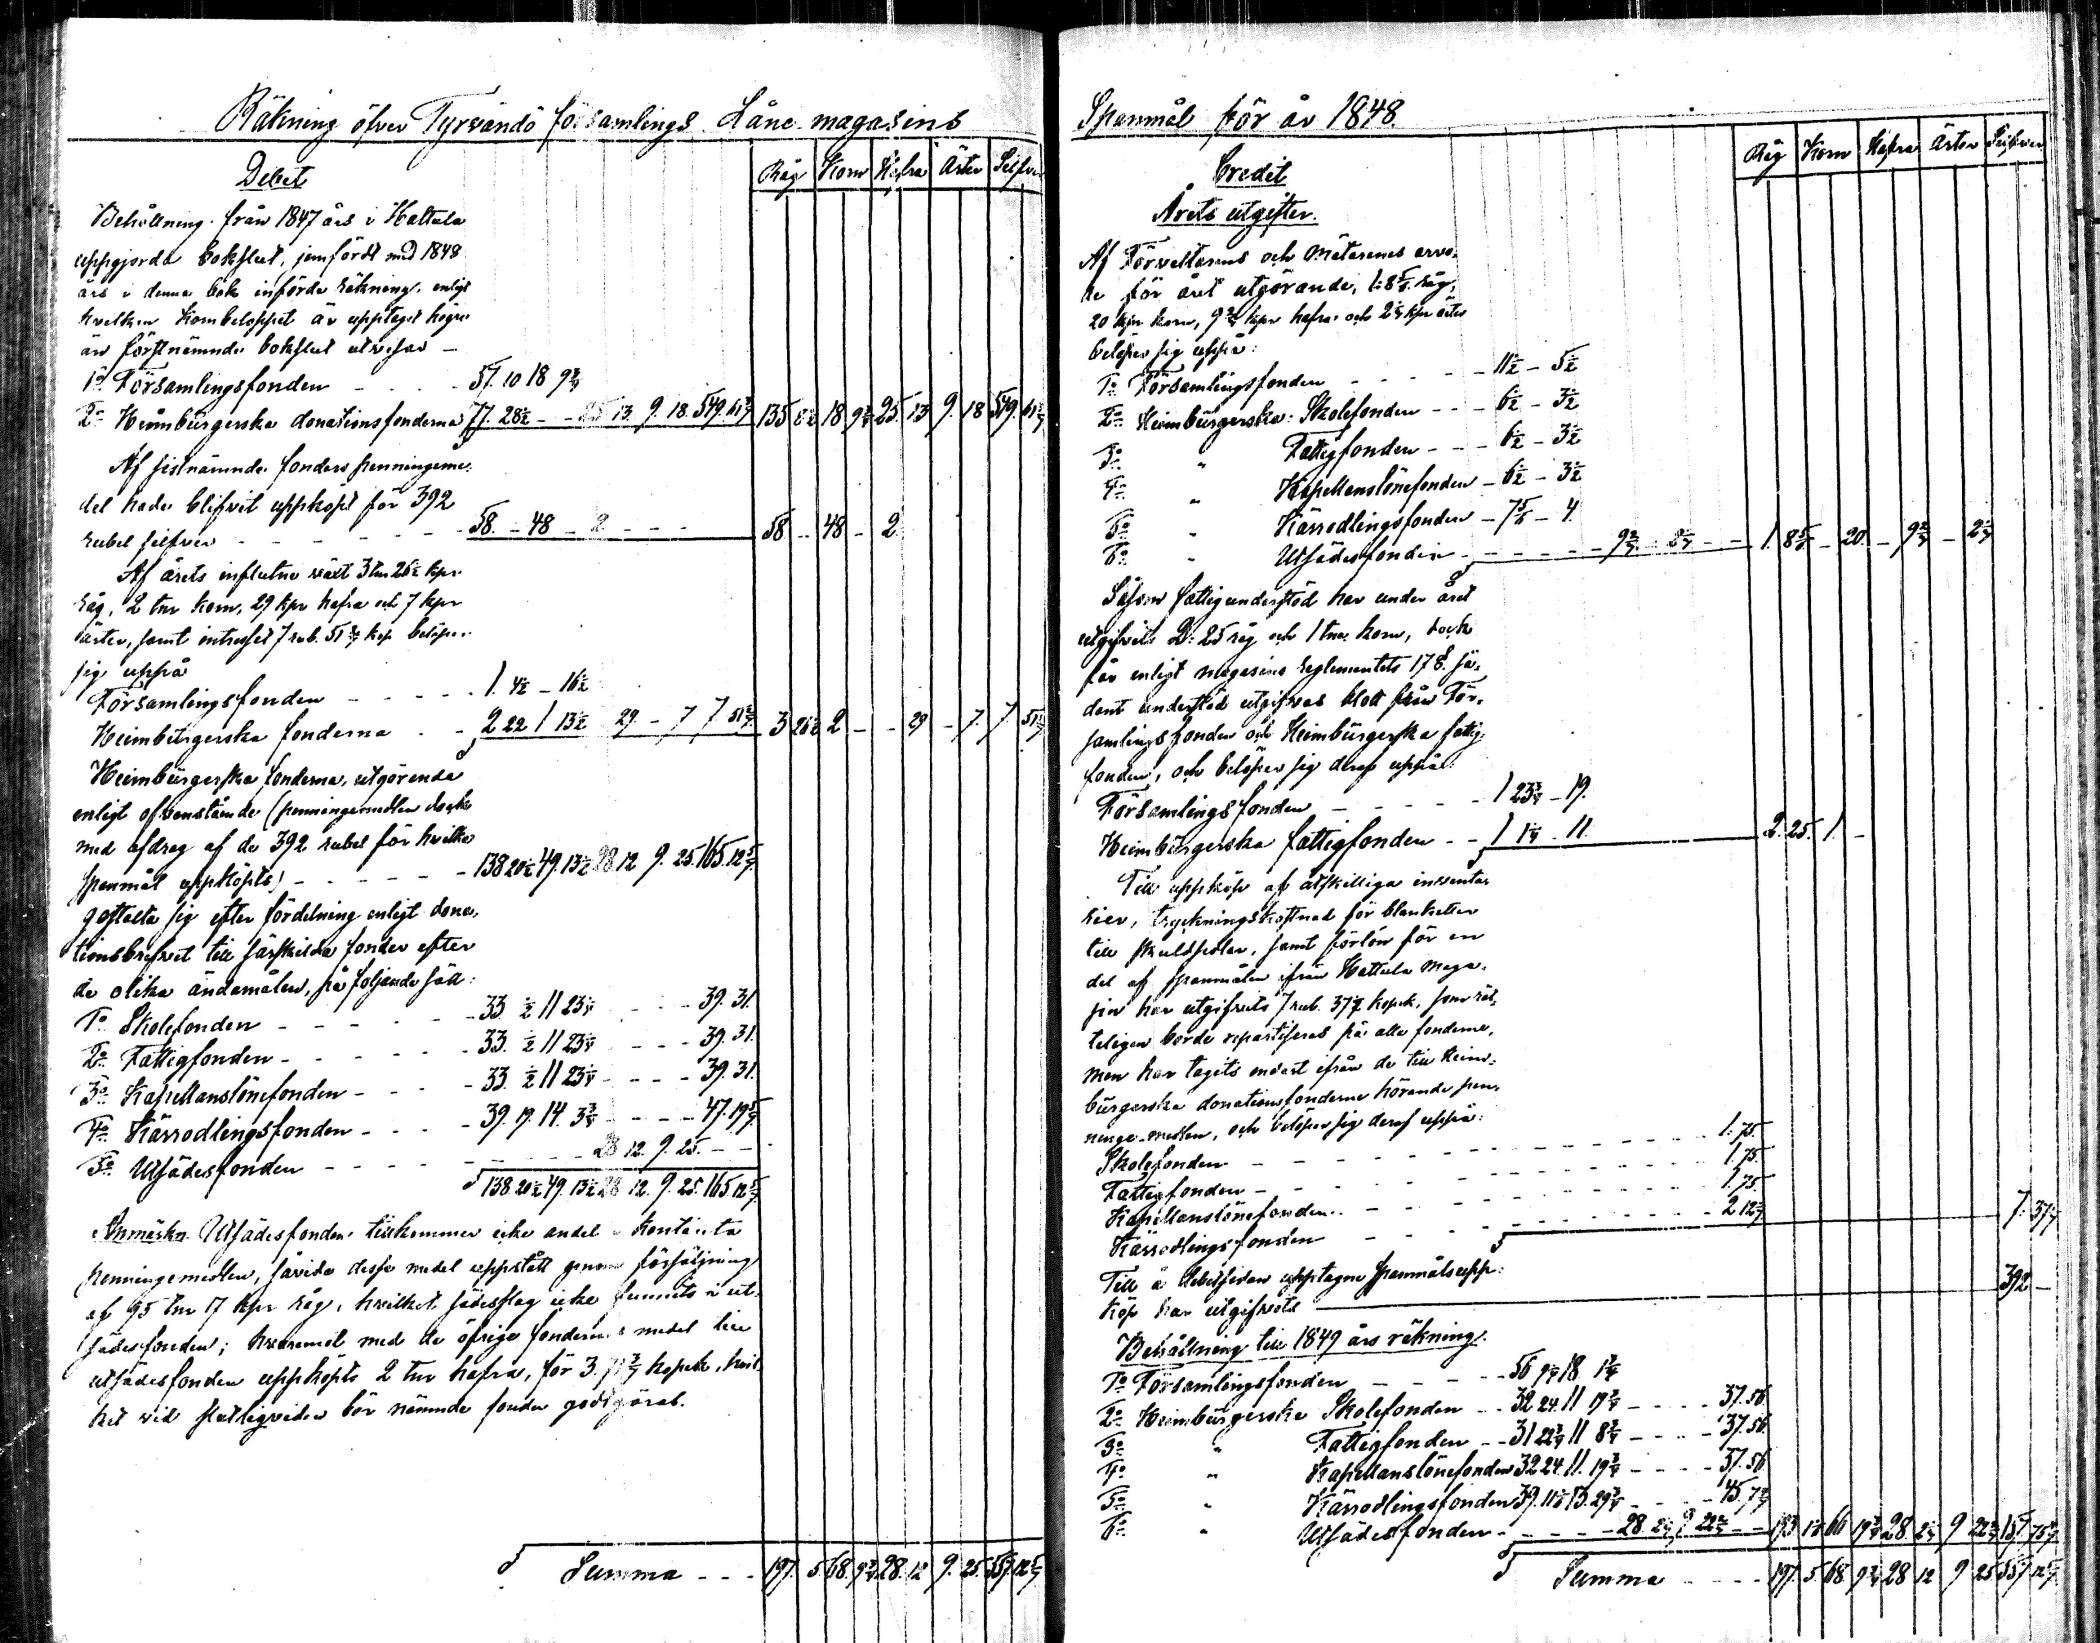 Räkning öfver Tyrvändö församlings Låne-magasins
Debet
Råg Korn Hafra Ärter Silfver
Behållning från 1847 års i Hattula
uppgjorda bokslut, jemfördt med 1848
års i denna bok införda räkning, enligt
hvilken Kornbeloppet är upptaget högre
än förstnämnda bokslut utvisar —
1o Församlingsfonden - - - 57. 10 18 9 3/4
2o Heimbürgerska donationsfonderna 77. 28 1/2 - - 25 13 9. 18. 549. 61 3/7 135 8 1/2 18 9 3/4 25. 13 9. 18 549. 61 3/7
Af sistnämnde fonders penningeme-
del hade blifvit uppköpt för 392
rubel silfver - - - - - - 58. - 48 - 2. - - - 58 - 48 - 2.
Af årets influtne växt 3 tnr 26 1/2 kpr
råg, 2 tnr korn, 29 kpr hafra och 7 kpr
ärter, samt intresset 7 rub. 51 2/7 kop belöper
sig uppå
Församlingsfonden - - - - - 1. 4 1/2 - 16 1/2
Heimbürgerska fonderna - - 2 22 1 13 1/2 29 - 7 7 51 2/7 3 26 1/2 2 - - 29 - 7. 7. 51 2/7
Heimbürgerska fonderna, utgörende
enligt ofvanstående (penningemedlen dock
med afdrag af de 392 rubel för hvilka
spanmål uppköpts) - - - - - 138 20 1/2 49. 13 1/2 28 12 9. 25. 165. 12 5/7
gestalta sig efter fördelning enligt dona-
tionsbrefvet till särskilda fonder efter
de olika ändamålen, på följande sätt:
1o Skolefonden - - - - - - 33. 1/2 11 23 1/4 - - - 39. 31.
2o Fattigfonden - - - - - - 33. 1/2 11 23 1/4 - - - 39. 31.
3o Kapellanslönefonden - - - 33. 1/2 11 23 1/4 - - - - 39. 31.
4o Kärrodlingsfonden - - - - 39. 19. 14. 3 3/4 - - - - 47. 19 5/7
5o Utsädesfonden - - - - - - - - 28 12. 9. 25. - -
138 20 1/2 49. 13 1/2 28 12. 9. 25. 165 12 5/7
Anmärkn. Utsädesfonden tillkommer icke andel i kontanta
penningemedlen, såvida dessa medel uppstått genom försäljning
af 95 tnr 17 kpr råg, hvilket sädesslag icke funnits i ut-
sädesfonden; hvaremot med de öfriga fondernas medel till
utsädesfonden uppköpts 2 tnr hafra, för 3. kopek, hvil-
ket vid slutliqviden bör nämnde fonder godtgöras.
Summa - - - 197. 5. 68. 9 3/4 28. 12 9. 25. 557. 12 5/7
Spanmål för år 1848.
Credit
Råg Korn Hafra Ärter Silfver
Årets utgifter.
Af Förvaltarens och Mätarenes arvo-
de för året utgörande, 1: 8 5/6 råg,
20 kpr korn, 9 2/4 kpr hafra och 2 2/7 kpr ärter
belöper sig uppå:
1o Församlingsfonden - - - - - 11 1/2 - 5 1/2
2o Heimbürgerska Skolefonden - - - 6 1/2 - 3 1/2
3o " Fattigfonden - - - 6 1/2 - 3 1/2
4o " Kapellanslönefonden - 6 1/2 - 3 1/2
5o " Kärrodlingsfonden - 7 5/6 - 4.
6o " Utsädesfonden - - - - - - 9 2/7 - 2 2/7 - - 1. 8 5/6 - 20. - 9 2/7 - 2 2/7
Såsom fattigunderstöd har under året
utgifvits 2: 25 råg och 1 tna korn, dock
får enligt magasins reglementets 17 §. så-
dant understöd utgifvas blott från För-
samlingsfonden och Heimbürgerska fattig-
fonden, och belöper sig deraf uppå:
Församlingsfonden - - - - - 1 23 3/4 - 19.
Heimbürgerska fattigfonden - - 1 1 1/4 - 11. 2. 25. 1. -
Till uppköp af åtskilliga inventa-
rier, tryckningskostnad för blanketter
till skuldsedlar, samt förlön för en
del af spanmålen ifrån Hattula maga-
sin har utgifvits 7 rub. 37 2/7 kopek, som rät-
teligen borde repartiseras på alla fonderne,
men har tagits endast ifrån de till Heim-
bürgerska donationsfonderne hörande pen-
ninge-medlen, och belöper sig deraf uppå:
Skolefonden - - - - - - - - - - 1. 75.
Fattigfonden - - - - - - - - - - 1. 75.
Kapellanslönefonden - - - - - - - 1. 75
Kärrodlingsfonden - - - - - - - 2 12 2/7 7. 37 2/7
Till å debetsidan upptagne spanmålsupp-
köp har utgifvits 392 -
Behållning till 1849 års räkning.
1o Församlingsfonden - - - - 56 9 1/4 18 1 3/4
2o Heimbürgerska Skolefonden - - 32 24. 11 19 3/4 - - - - 37. 56.
3o " Fattigfonden - - 31 22 3/4 11 8 3/4 - - - - 37. 56.
4o " Kapellanslönefonden 32 24. 11. 19 3/4 - - - - 37. 56
5o " Kärrodlingsfonden 39. 11 1/6 13. 29 3/4 - - - 45. 7 3/7
6o " Utsädesfonden - - - - - 28. 2 5/7 9 22 5/7 - - 193 1 1/6 66 19 3/4 28. 2 5/7 9 22 5/7 157 75 3/7
Summa - - - - 197. 5. 68 9 3/4 28 12 9 25 557 12 5/7